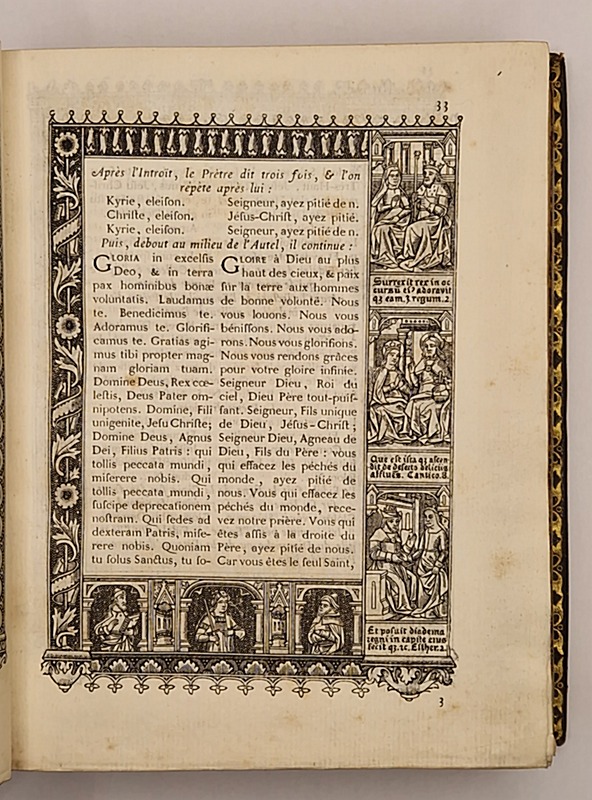 33
Après l'Introït, le Prêtre dit trois fois, & l'on
répète après lui :
Kyrie, eleiſon.
Chriſte, eleiſon.
Kyrie, eleiſon.
Seigneur, ayez pitié de n.
Jéſus-Chriſt, ayez pitié.
Seigneur, ayez pitié de n.
Puis, debout au milieu de l'Autel, il continue :
GLORIA in excelſis
Deo, & in terra
pax hominibus bonæ
voluntatis. Laudamus
te. Benedicimus te.
Adoramus te. Glorifi-
camus te. Gratias agi-
mus tibi propter mag-
nam gloriam tuam.
Domine Deus, Rex cœ-
leſtis, Deus Pater om-
nipotens. Domine, Fili
unigenite, Jeſu Chriſte;
Domine Deus, Agnus
Dei, Filius Patris : qui
tollis peccata mundi,
miſerere nobis. Qui
tollis peccata mundi,
ſuſcipe deprecationem
noſtram. Qui ſedes ad
dexteram Patris, miſe-
rere nobis. Quoniam
tu ſolus Sanctus, tu ſo-
GLOIRE à Dieu au plus
haut des cieux, & paix
ſur la terre aux hommes
de bonne volonté. Nous
vous louons. Nous vous
béniſſons. Nous vous ado-
rons. Nous vous glorifions.
Nous vous rendons grâces
pour votre gloire infinie.
Seigneur Dieu, Roi du
ciel, Dieu Père tout-puiſ-
ſant. Seigneur, Fils unique
de Dieu, Jéſus-Chriſt;
Seigneur Dieu, Agneau de
Dieu, Fils du Père : vous
qui effacez les péchés du
monde, ayez pitié de
nous. Vous qui effacez les
péchés du monde, rece-
vez notre prière. Vous qui
êtes aſſis à la droite du
Père, ayez pitié de nous.
Car vous êtes le ſeul Saint,
Surrexit rex in oc
curſū ei' adoravit
qz eam. 3 regum. 2.
Que eſt iſta qi aſcen
dit de deſerto
Cantico. 8.
Et poſuit diadema
regni in capite eius
fecit qz. ic. Eſther. 2
3